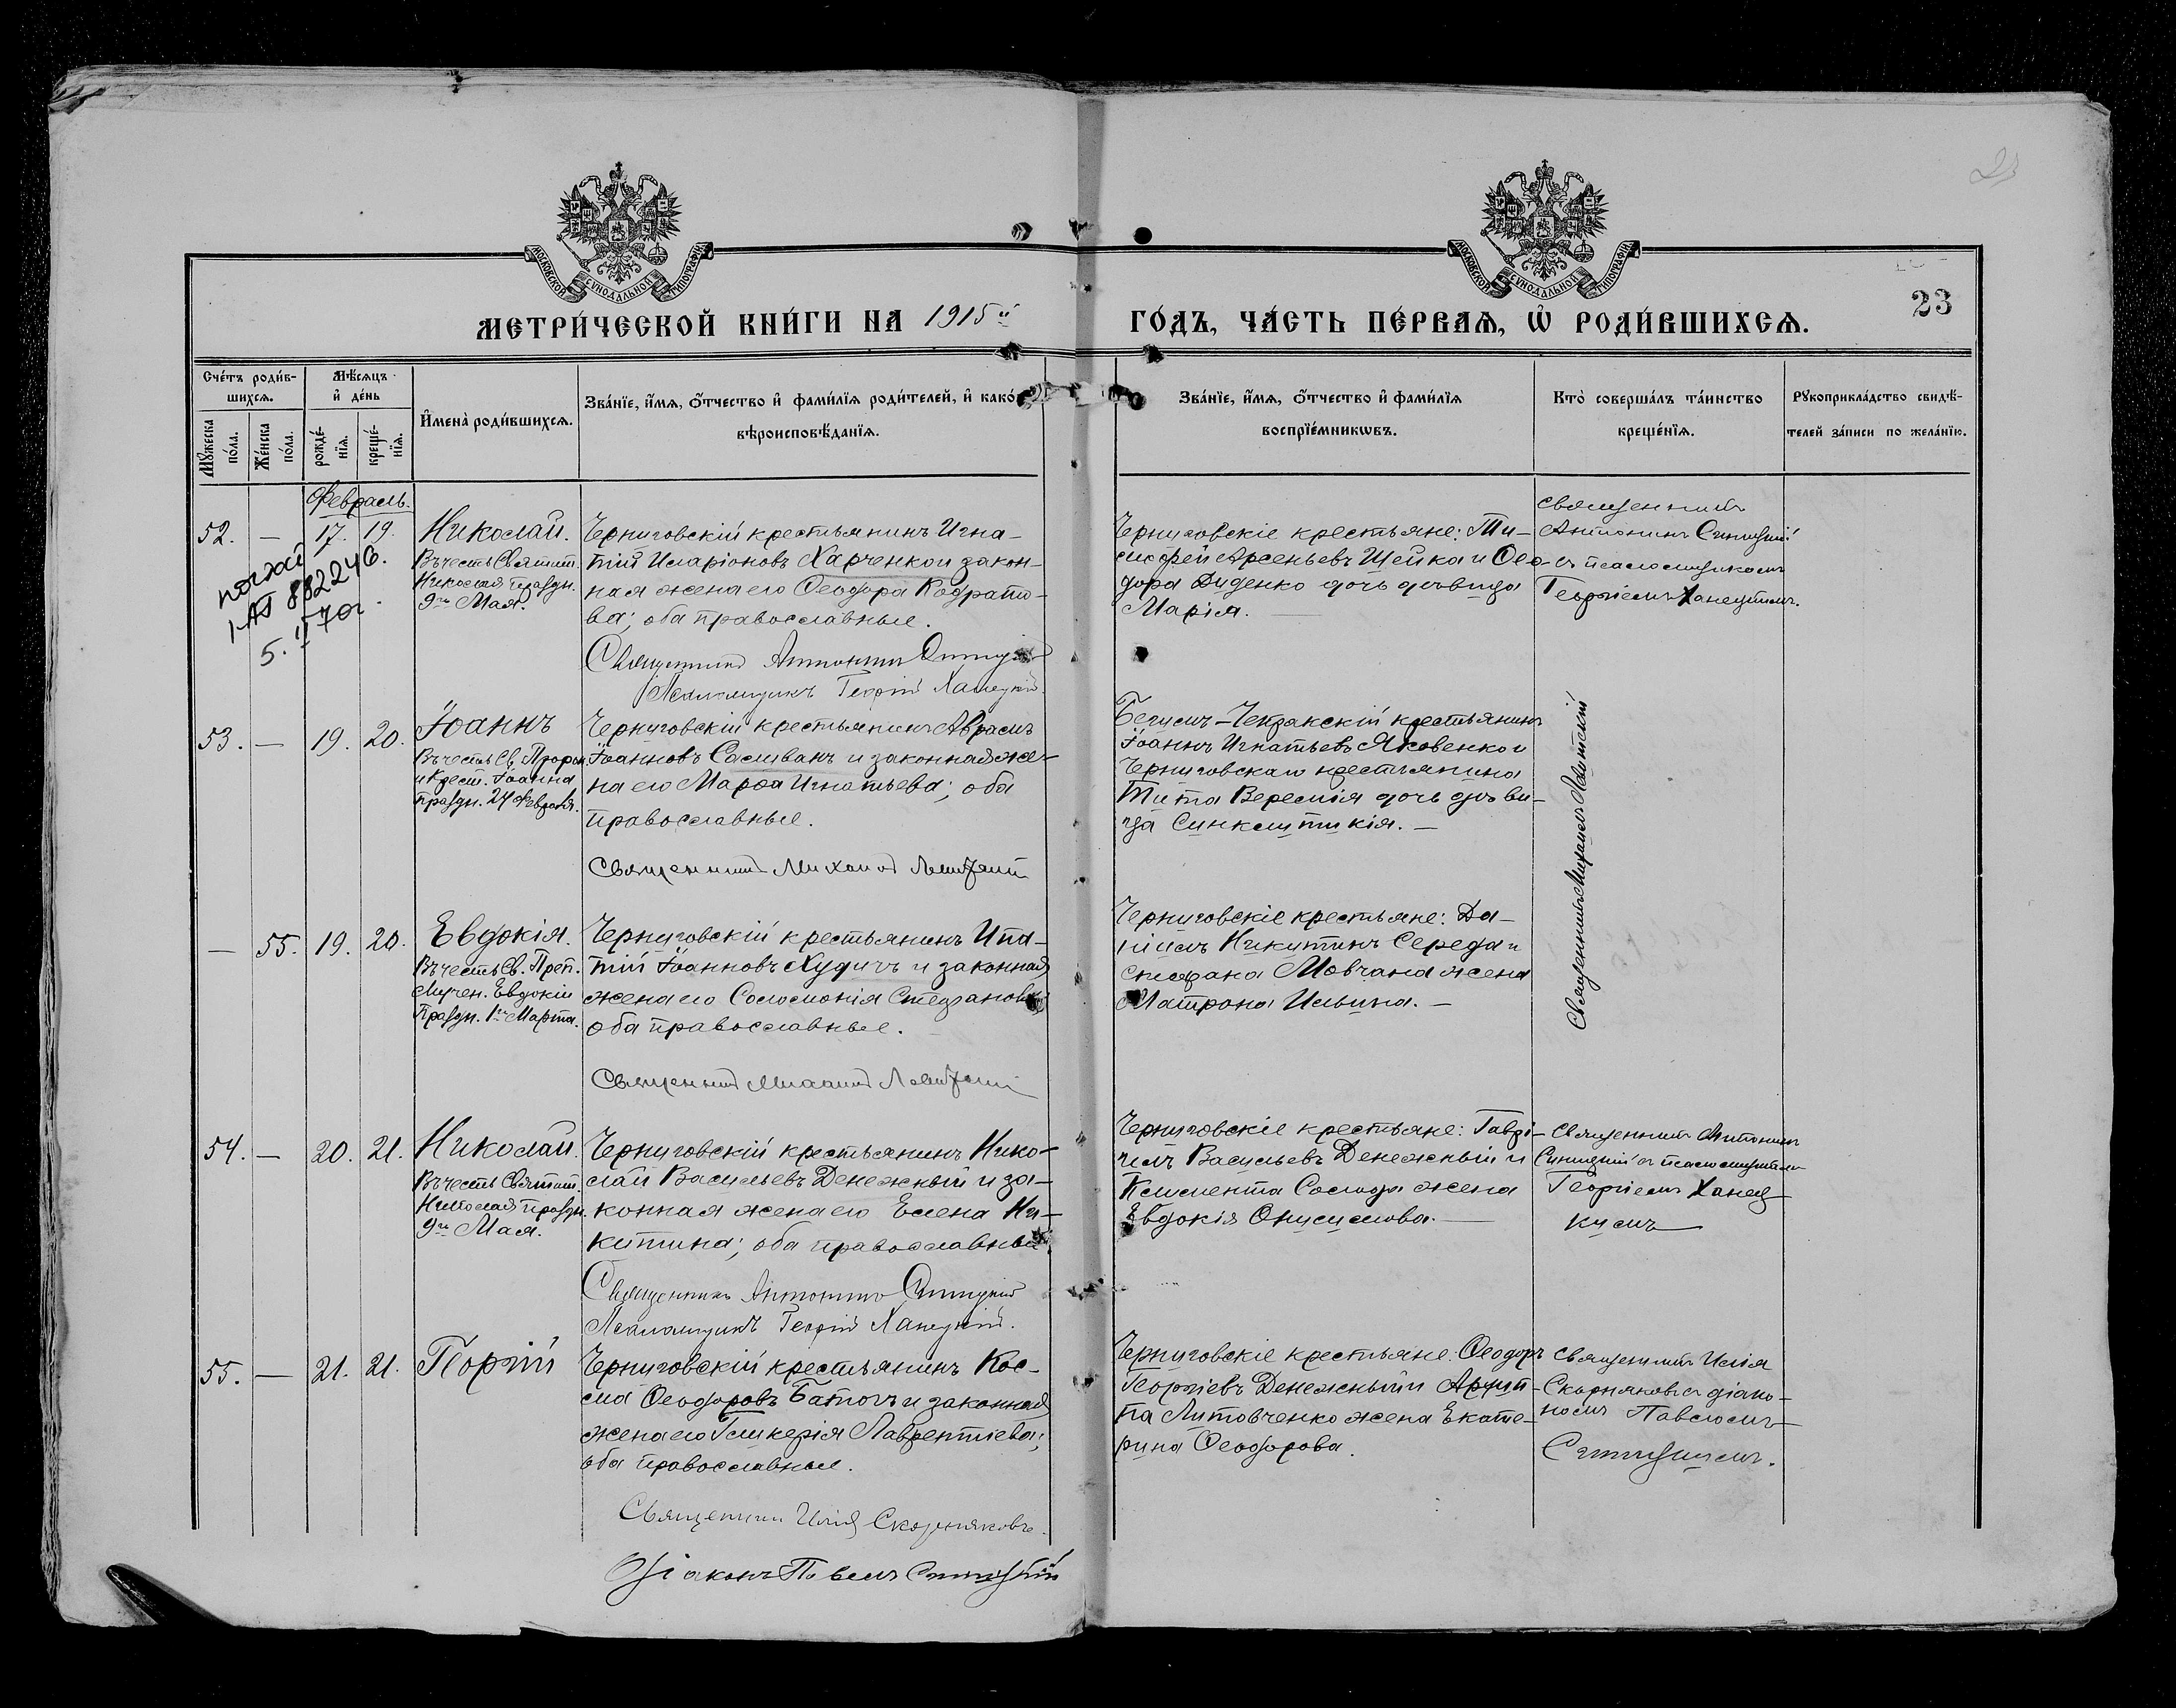 МОСКОВСКОЙ СѴНОДАЛЬНОЙ ТИПОГРАФІИ
МОСКОВСКОЙ СѴНОДАЛЬНОЙ ТИПОГРАФІИ
23
МЕТРИ́ЧЕСКОЙ КНИ́ГИ НА 1915й
ГО́ДЪ, ЧА́СТЬ ПЕ́РВАѦ, Ѡ҆ РОДИ́ВШИХСѦ.
Сче́тъ роди́в-
шихсѧ.
Мѣ́сяцъ
и҆ де́нь
Мꙋ́жеска
по́ла.
Же́нска
по́ла.
рожде́-
нїѧ.
креще́-
нїѧ.
И҆мена̀ роди́вшихсѧ.
Зва́нїе, и҆́мѧ, ѻ҆́тчество и҆ фами́лїѧ роди́телей, и҆ како́гѡ
вѣроисповѣ́данїѧ.
Зва́нїе, и҆́мѧ, ѻ҆́тчество и҆ фами́лїѧ
воспрїе́мникѡвъ.
Кто̀ соверша́лъ та́инство
креще́нїѧ.
Рꙋкоприкла́дство свидѣ́-
телей за́писи по жела́нїю.
Февраль.
52. — 17. 19. Николай.
Въ честь Святит.
Николая праздн.
9го Мая.
1-АП 882246.
5.II 70г.
Черниговскій крестьянинъ Игна-
тій Иларіоновъ Харченко и закон-
ная жена его Ѳеодора Кодрато-
ва; оба православные.
Священникъ Антонинъ Синицкій
Псаломщикъ Георгій Ханецкій.
Черниговскіе крестьяне: Ти-
моѳей Арсеньевъ Шейка и Ѳео-
дора Диденко дочь дѣвица
Марія.
священникъ
Антонинъ Синицкій
съ псаломщикомъ
Георгіемъ Ханецкимъ.
53. — 19. 20. Іоаннъ
Въ честь Св. Пророк.
и Крест. Іоанна
праздн. 24 Февраля.
Черниговскій крестьянинъ Аврамъ
Іоанновъ Саливанъ и законная же-
на его Марѳа Игнатьева; оба
православные.
Священникъ Михаилъ
Іоаннъ Игнатьевъ Яковенко и
Черниговскаго крестьянина
Тита Веремія дочь дѣви-
ца Синклитикія. —
Священникъ Михаилъ
— 55. 19. 20. Евдокія.
Въ честь Св. Преп.
Мучен. Евдокіи
Праздн. 1го Марта.
Черниговскій крестьянинъ Ипа-
тій Іоанновъ Худичъ и законная
жена его Соломонія Стефанова
оба православные.
Священникъ Михаилъ
Черниговскіе крестьяне: Да-
ніилъ Никитинъ Середа и
Стефана Мовчана жена
Матрона Ильина. —
54. — 20. 21. Николай.
Въ честь Святит.
Николая праздн.
9го Мая.
Черниговскій крестьянинъ Нико-
лай Васильевъ Денежный и за-
конная жена его Елена Ни-
китина; оба православные
Священникъ Антонинъ Синицкій
Псаломщикъ Георгій Ханецкій.
Черниговскіе крестьяне: Гаврі-
илъ Васильевъ Денежный и
Климента Солода жена
Евдокія Онисимова. —
Священникъ Антонинъ
Синицкій съ псаломщикомъ
Георгіемъ Ханец-
кимъ
55. — 21. 21. Георгій
Черниговскій крестьянинъ Кос-
ма Ѳеодоровъ Батогъ и законная
жена его Гликерія Лаврентіева;
оба православные.
Священникъ Илія Скорняковъ.
Діаконъ Павелъ Синицкій
Черниговскіе крестьяне: Ѳеодоръ
Георгіевъ Денежный и Архип-
па Литовченко жена Екате-
рина Ѳеодорова.
священникъ Илія
Скорняковъ съ діако-
номъ Павломъ
Синицкимъ.